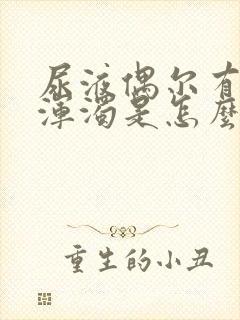 尿液偶尔有
浑浊是怎麼
重生的小丑